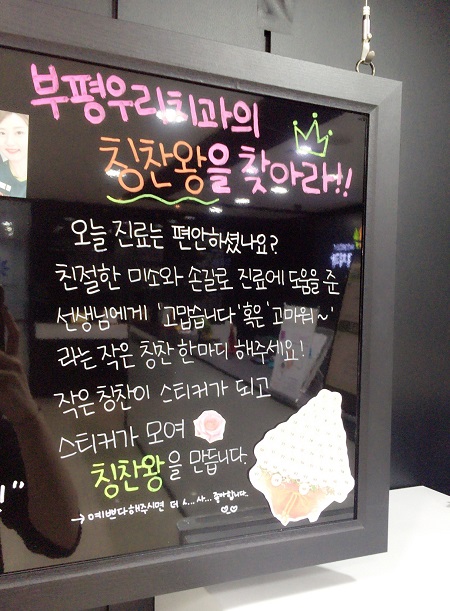 부평우리치과의
칭찬왕을 찾아라!!
오늘 진료는 편안하셨나요?
친절한 미소와 손길로 진료에 도움을 준
선생님에게 '고맙습니다' 혹은 '고마워~'
라는 작은 칭찬 한마디 해주세요!
작은 칭찬이 스티커가 되고
스티커가 모여
칭찬왕을 만듭니다.
→ 예쁘다해주시면 더 ㅅ... 사... 좋아합니다.